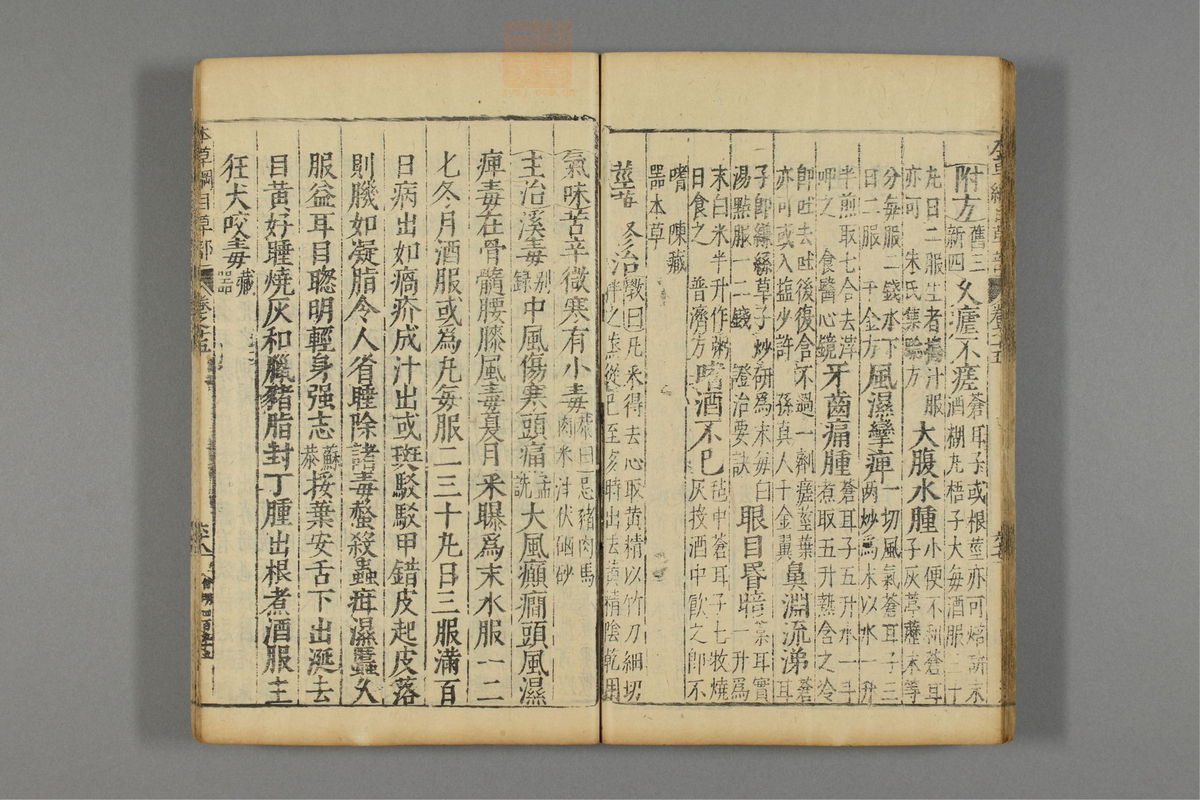 附方舊三新四久瘧不瘥蒼耳子或根莖亦可焙研末酒糊丸梧子大每酒服三十
丸日二服生者擣汁服亦可朱氏集驗方大腹水腫小便不利蒼耳子灰葶藶末等
分每服二錢水下日二服千金方風濕攣痺一切風氣蒼耳子三兩炒為末以水一升
半煎取七合去滓呷之食醫心鏡牙齒痛腫蒼耳子五升水一斗煮取五升熱含之冷
即吐去吐後復含不過一劑瘥莖葉亦可或入鹽少許孫真人千金翼鼻淵流涕蒼耳
子即縑絲草子炒研為末每白湯點服一二錢證治要訣眼目昏暗菜耳實一升為
末白米半升作粥日食之普濟方嗜酒不已氊中蒼耳子七枚燒灰投酒中飲之即不
嗜陳藏器本草
莖葉修治斅曰凡采得去心取黃精以竹刀細切拌之蒸從巳至亥時出去黃精陰乾用
氣味苦辛微寒有小毒恭曰忌豬肉馬肉米泔伏硇砂
主治溪毒別錄中風傷寒頭痛孟詵大風癲癇頭風濕
痺毒在骨髓腰膝風毒夏月采曝為末水服一二
匕冬月酒服或為丸每服二三十丸日三服滿百
日病出如瘑疥成汁出或斑駁駁甲錯皮起皮落
則膚如凝脂令人省睡除諸毒螫殺蟲疳濕䘌久
服益耳目聰明輕身强志蘇恭挼葉安舌下出涎去
目黃好睡燒灰和臘豬脂封丁腫出根煮酒服主
狂犬咬毒藏器
本草綱目草部 卷之十五